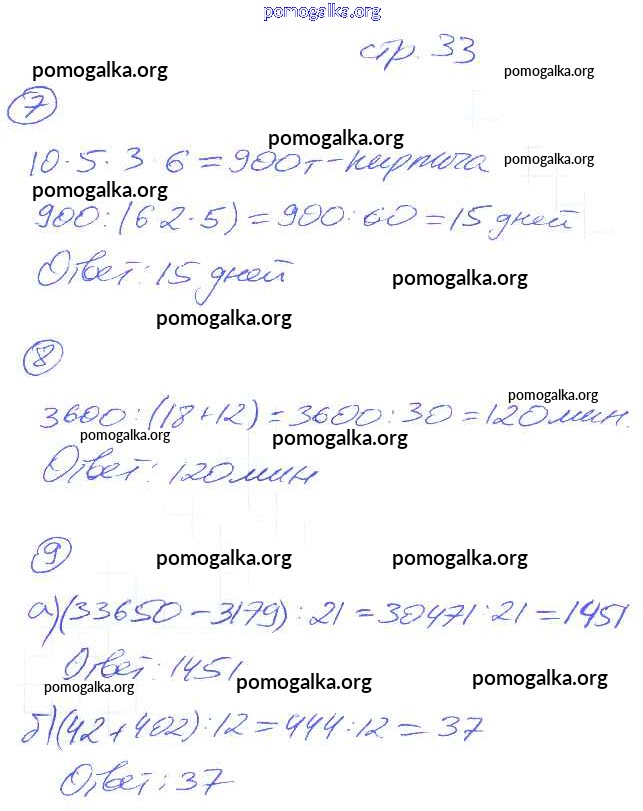 pomogalka.org
стр. 33
pomogalka.org pomogalka.org
7
pomogalka.org
10·5·3·6=900т-кирпича pomogalka.org
pomogalka.org
900:(6·2·5)=900:60=15 дней
Ответ: 15 дней pomogalka.org
pomogalka.org
8
pomogalka.org
3600:(18+12)=3600:30=120мин.
pomogalka.org pomogalka.org
Ответ: 120мин
9 pomogalka.org pomogalka.org
а)(33650-3179):21=30471:21=1451
Ответ: 1451
pomogalka.org pomogalka.org pomogalka.org
б)(42+402):12=444:12=37
Ответ: 37